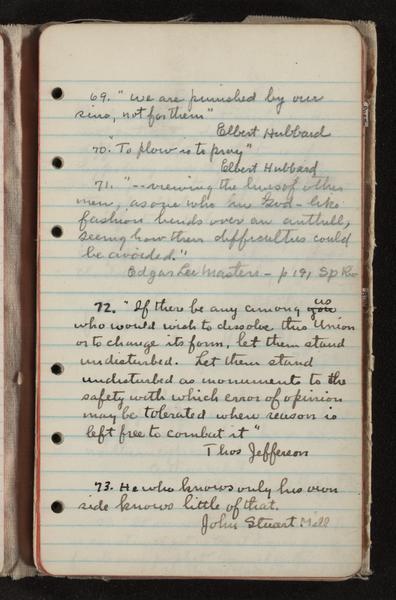 69. "We are punished by our
sins, not for them"
Elbert Hubbard
70. "To plow is to pray"
Elbert Hubbard
71. "-- viewing the lives of other
men, as one who in God-like
fashion bends over an anthill,
seeing how their difficulties could
be avoided."
Edgar Lee Masters - p 19, Sp Riv
us
72. "If there be any among you
who would wish to dissolve this Union
or to change its form, let them stand
undisturbed. Let them stand
undisturbed as monuments to the
safety with which error of opinion
may be tolerated when reason is
left free to combat it"
Thos Jefferson
73. He who knows only his own
side knows little of that.
John Stuart Mill